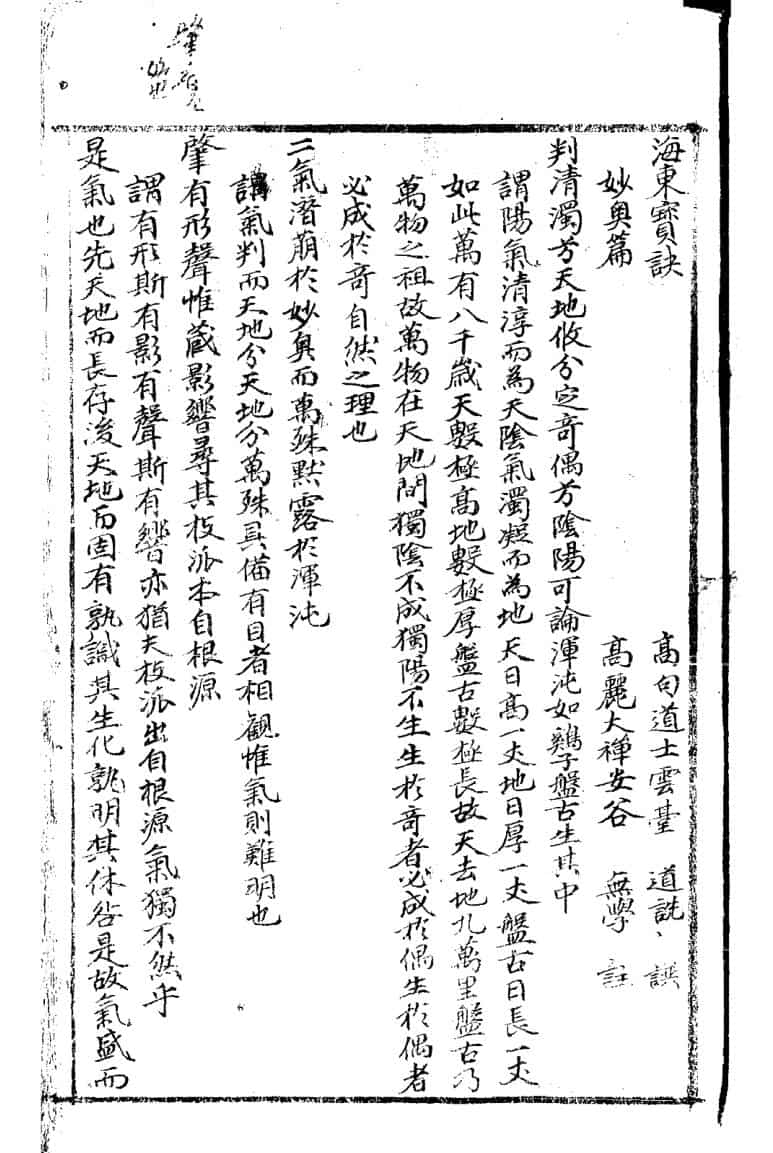 海東寳訣　高句道士雲䑓　道詵、　譔
妙奧篇　高麗大禅安谷　無學　註
判清濁兮天地攸分㝎竒偶兮陰陽可論渾沌如鷄子盤古生其中
謂陽氣清淳而為天陰氣濁凝而為地天日髙一丈地日厚一丈盤古日長一丈
如此萬有八千歲天數極髙地數極厚盤古數極長故天去地九萬里盤古乃
萬物之祖故萬物在天地間獨陰不成獨陽不生生於竒者必成於偶生於偶者
必成於竒自然之理也
二氣潛萠於妙奧而萬殊黙露於渾沌
謂氣判而天地分天地分萬殊具備有目者相觀惟氣則難明也
肇有形聲惟蔵影響尋其枝派本自根源
謂有形斯有影有聲斯有響亦猶夫枝派出自根源氣獨不然乎
是氣也先天地而長存後天地而固有孰識其生化孰明其休咎是故氣盛而
肇
始也